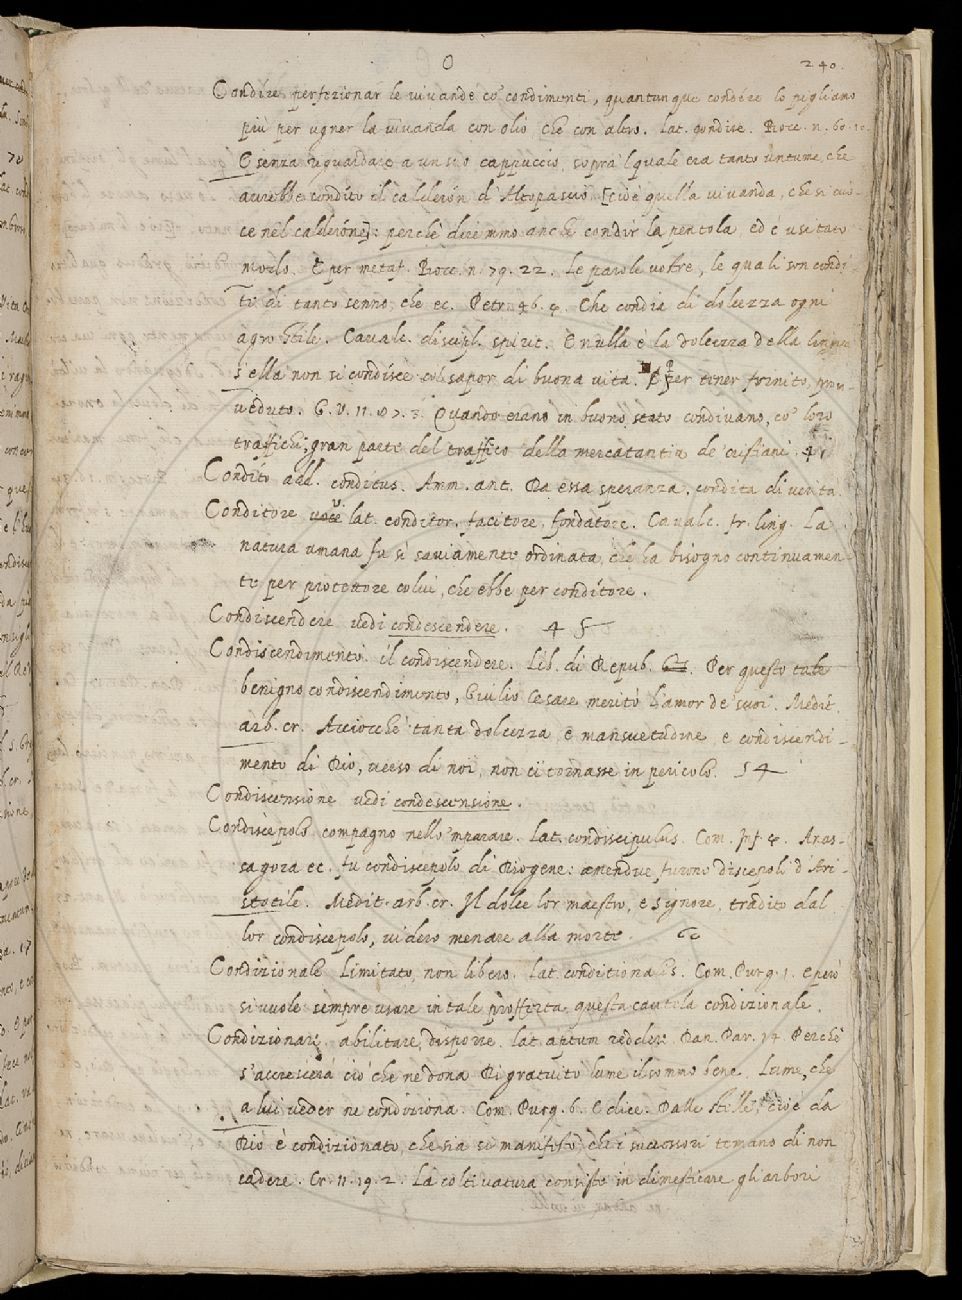 O
240.
Condíre perfezionar le vivande co' condimenti, quantunque condíre lo pigliamo
più per ugner la vivanda con olio, che con altro. lat. condire. Bocc. n. 60. 10.
E senza riguardare a un suo cappuccio, sopra 'l quale era tanto untume, che
aurebbe condíto il calderón d'Altopascio [cioè quella vivanda, che si cuo-
ce nel calderóne]: perchè diremmo anche condir la pentola, ed è usitato
modo. E per metaf. Bocc. n. 79. 22. Le parole vostre, le quali son condi
te di tanto senno, che ec. Petr. 46. 4. Che condia di dolcezza ogni
agro stile. Cavalc. discipl. spirit. E nulla è la dolcezza della lingua
s'ella non si condísce col sapor di buona vita. E per tener fornito, prov-
veduto. G. V. 11. 87. 3. Quando erano in buono stato condivano, co' loro
traffichi, gran parte del traffico della mercatantia de' cristiani. 4
Condíto add. conditus. Amm. ant. Da essa speranza, condita di verità.
Conditore lat. conditor, facitore, fondatore. Cavalc. fr. ling. La
natura umana fu sì saviamente ordinata, che ha bisogno continuamen-
te per protettore colui, che ebbe per conditore.
Condiscendere vedi condescendere. 4 5
Condiscendimento. il condiscendere. Lib. di Repub. Per questo tale
benigno condiscendimento, Giulio Cesare meritò l'amor de' suoi. Medit.
arb. cr. Acciocchè tanta dolcezza, e mansuetudine, e condiscendi-
mento di Dio, verso di noi, non ci tornasse in pericolo. 5 4
Condiscensione vedi condescensione.
Condiscépolo compagno nello 'mparare. Lat. condiscipulus. Com. Inf. 4. Anas-
sagora ec. fu condiscepolo di Diogene: amendue furono discepoli d'Ari-
stotile. Medit. arb. cr. Il dolce lor maestro, e Signore, tradito dal
lor condiscepolo, videro menare alla morte. 6
Condizionale limitato, non libero. lat. conditionalis. Com. Purg. 1. E però
si vuole sempre usare in tale profferta questa cautela condizionale.
Condizionare, abilitare, disporre. lat. aptum reddere. Dan. Par. 14. Perchè
s'accrescerà ciò che ne dona Di gratuito lume il sommo bene. Lume, che
a lui veder ne condiziona. Com. Purg. 6. E dice. Dalle stelle, cioè da
Dio è condizionato, che sia sì manifesto, che i successori temano di non
cadere. Cr. 11. 19. 2. La coltivatura consiste in dimesticare gli arbori